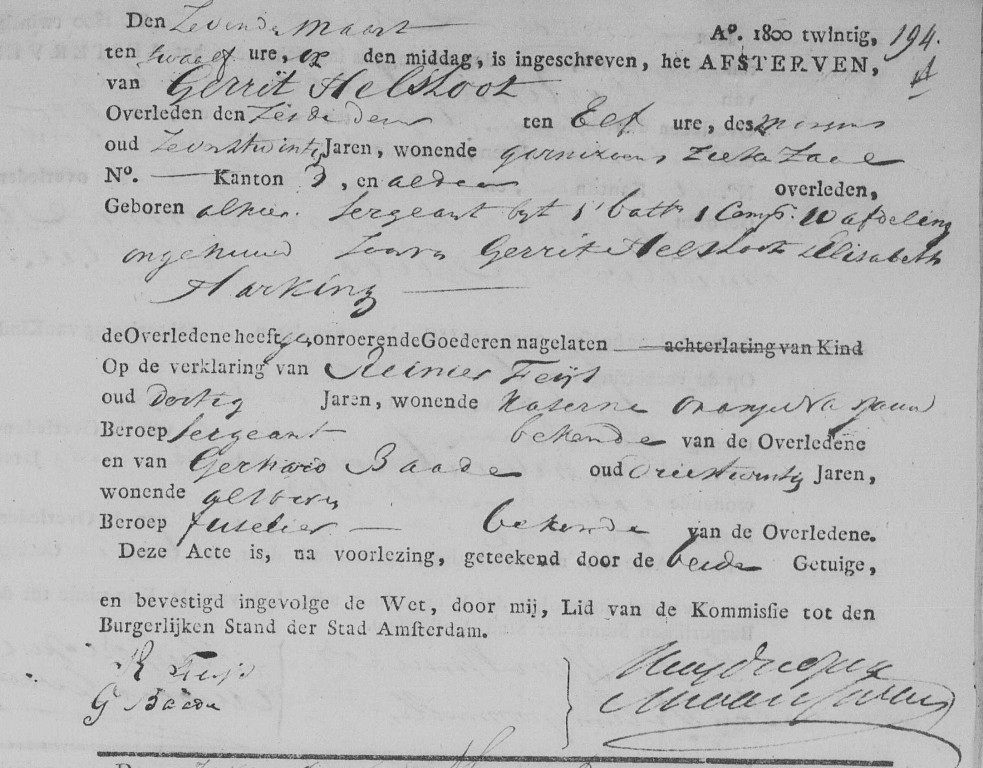 Den Zevende Maart A°. 1800 twintig, 194.
ten twaalf ure, op den middag, is ingeschreven, het AFSTERVEN,
van Gerrit Helsloot
Overleden den ten Elf ure, des
oud Jaren, wonende
N°. — Kanton 3, en aldaar overleden,
Geboren alhier. Sergeant byt 1e bath 1 Comp. 10 afdeling
ongehuwd Zoon van Gerrit Helsloot Elisabeth
Harking
de Overledene heeft geen onroerende Goederen nagelaten achterlating van Kind
Op de verklaring van Reinier Feijt
oud Dertig Jaren, wonende Kaserne Oranje Nassau
Beroep Sergeant bekende van de Overledene
en van Gerhard Baade oud Drieentwintig Jaren,
wonende
Beroep fuselier — bekende van de Overledene.
Deze Acte is, na voorlezing, geteekend door de beide Getuige,
en bevestigd ingevolge de Wet, door mij, Lid van de Kommissie tot den
Burgerlijken Stand der Stad Amsterdam.
R Feijt
G Baade